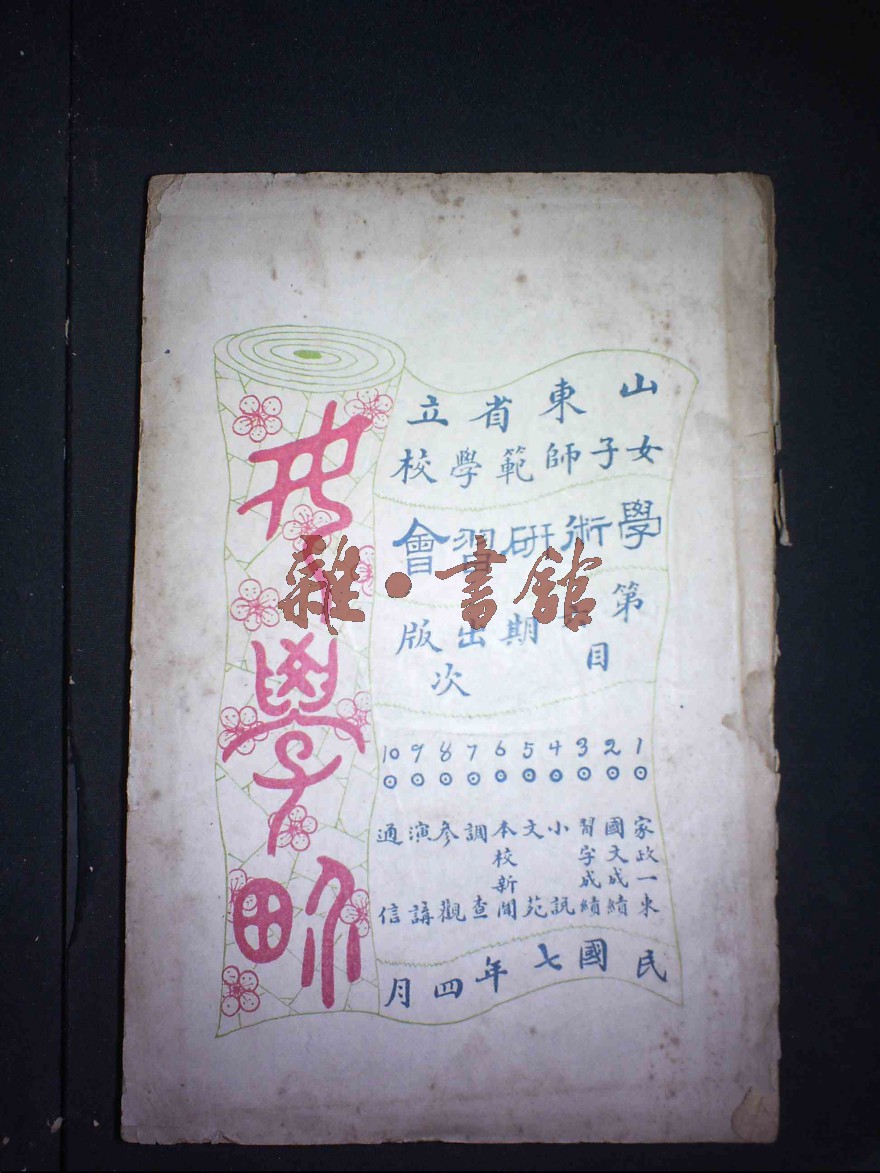 山東省立
女子師範學校
學術研習會
第 期出版
目次
1 家政一束
2 國文成績
3 習字成績
4 小說
5 文苑
6 本校新聞
7 調查
8 參觀
9 演講
10 通信
民國七年四月
女學界
雜·書館